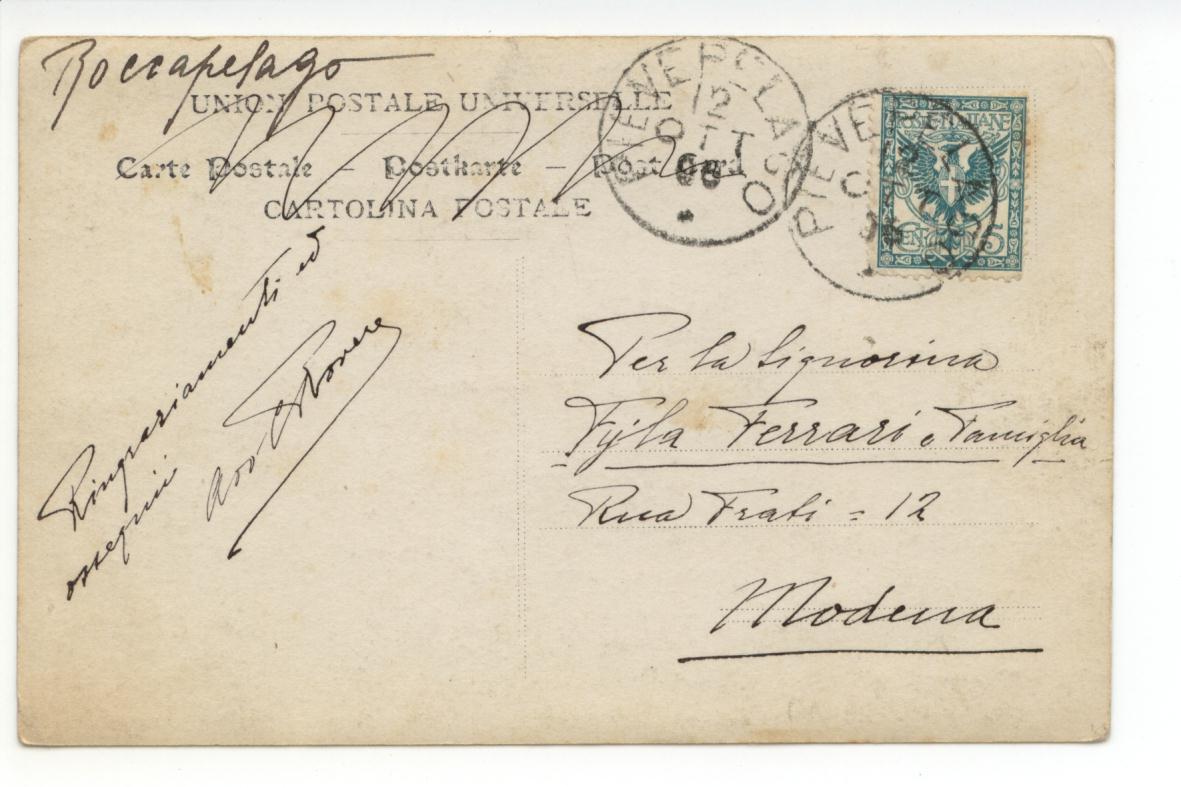 Roccapelago
UNION POSTALE UNIVERSELLE
Carte Postale – Postkarte – Post Card
CARTOLINA POSTALE
PIEVEPELAGO
12
OTT
06
PIEVEPELAGO
POSTE ITALIANE
CENT. 5
Ringraziamenti ed
ossequii
Per la Signorina
Ferrari e Famiglia
Rua Frati = 12
Modena